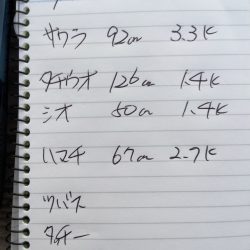 サワラ 92cm 3.3K
タチウオ 126cm 1.4K
シオ 50cm 1.4K
ハマチ 67cm 2.7K
ツバス
タチー